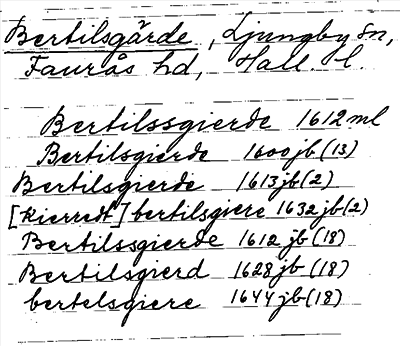 Bertilsgärde, Ljungby sn,
Faurås hd, Hall. l.
Bertilssgierde 1612 ml
Bertilsgierde 1600 jb (13)
Bertilsgierde 1613 jb (2)
[kierredt] bertilsgiere 1632 jb (2)
Bertilssgierde 1612 jb (18)
Bertilsgierd 1628 jb (18)
bertelsgiere 1644 jb (18)